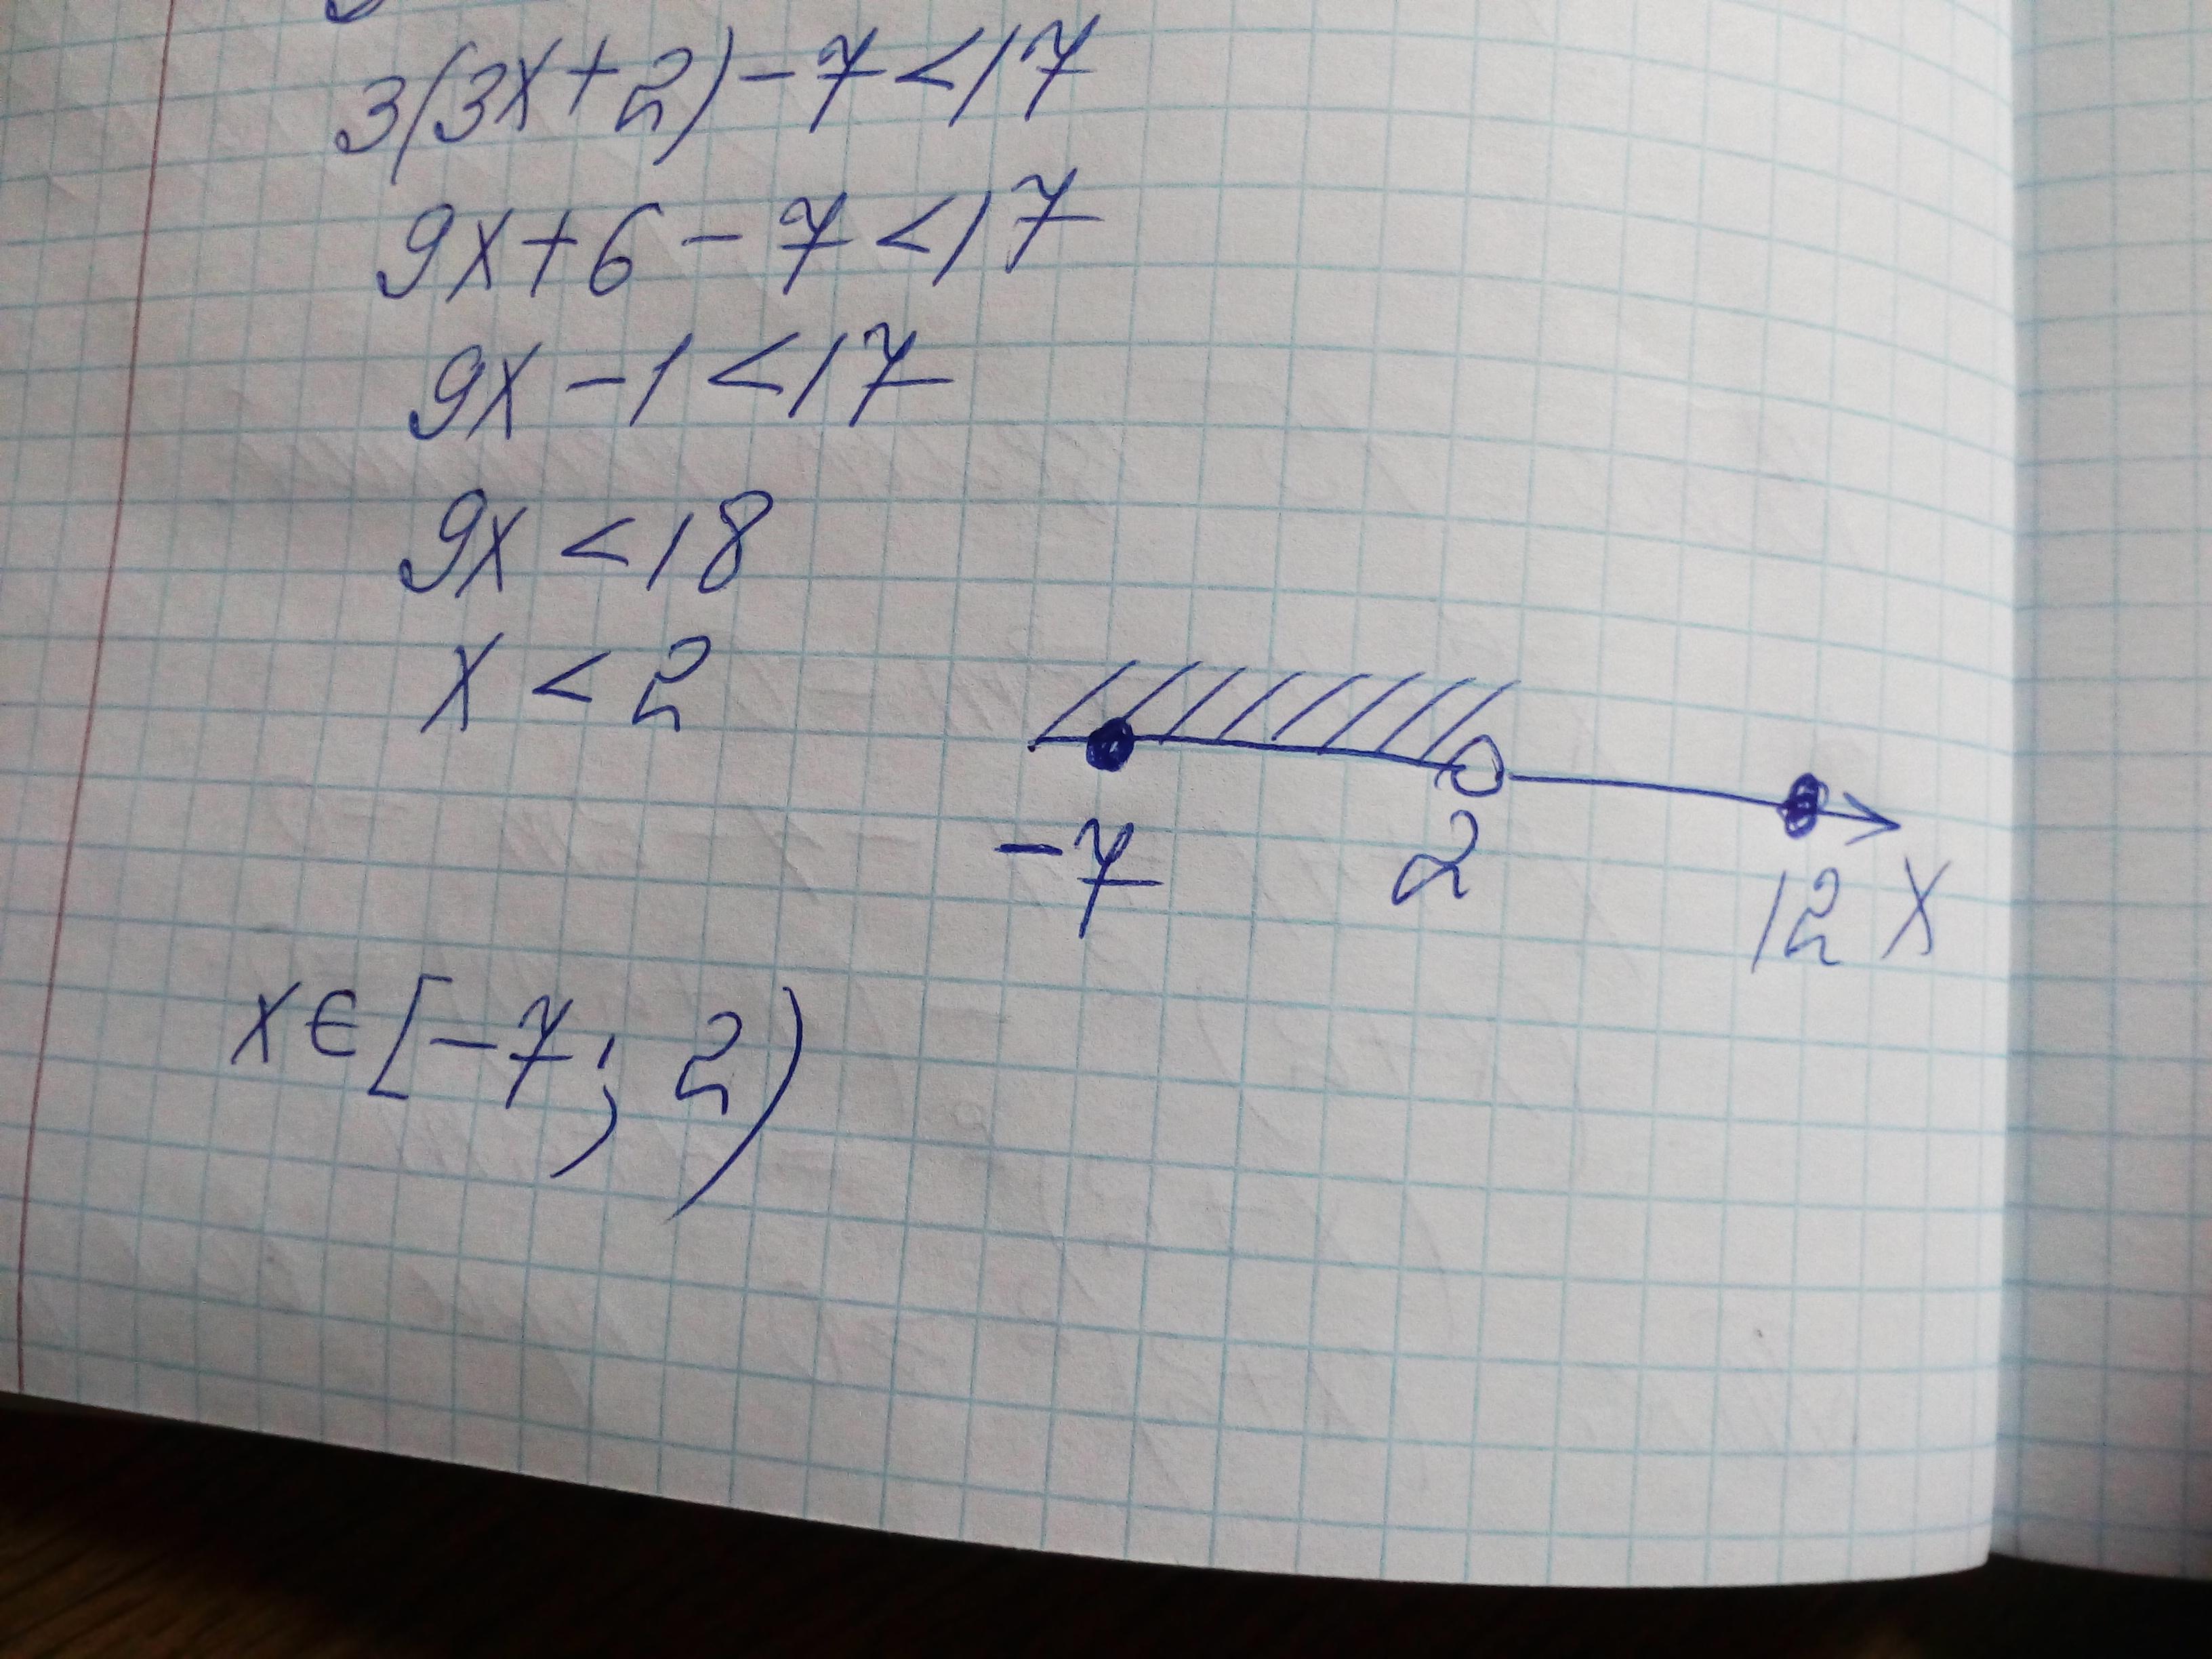 3(3x+2)-7<17
9x+6-7<17
9x-1<17
9x<18
x<2
-7 2 12 x
x∈[-7; 2)